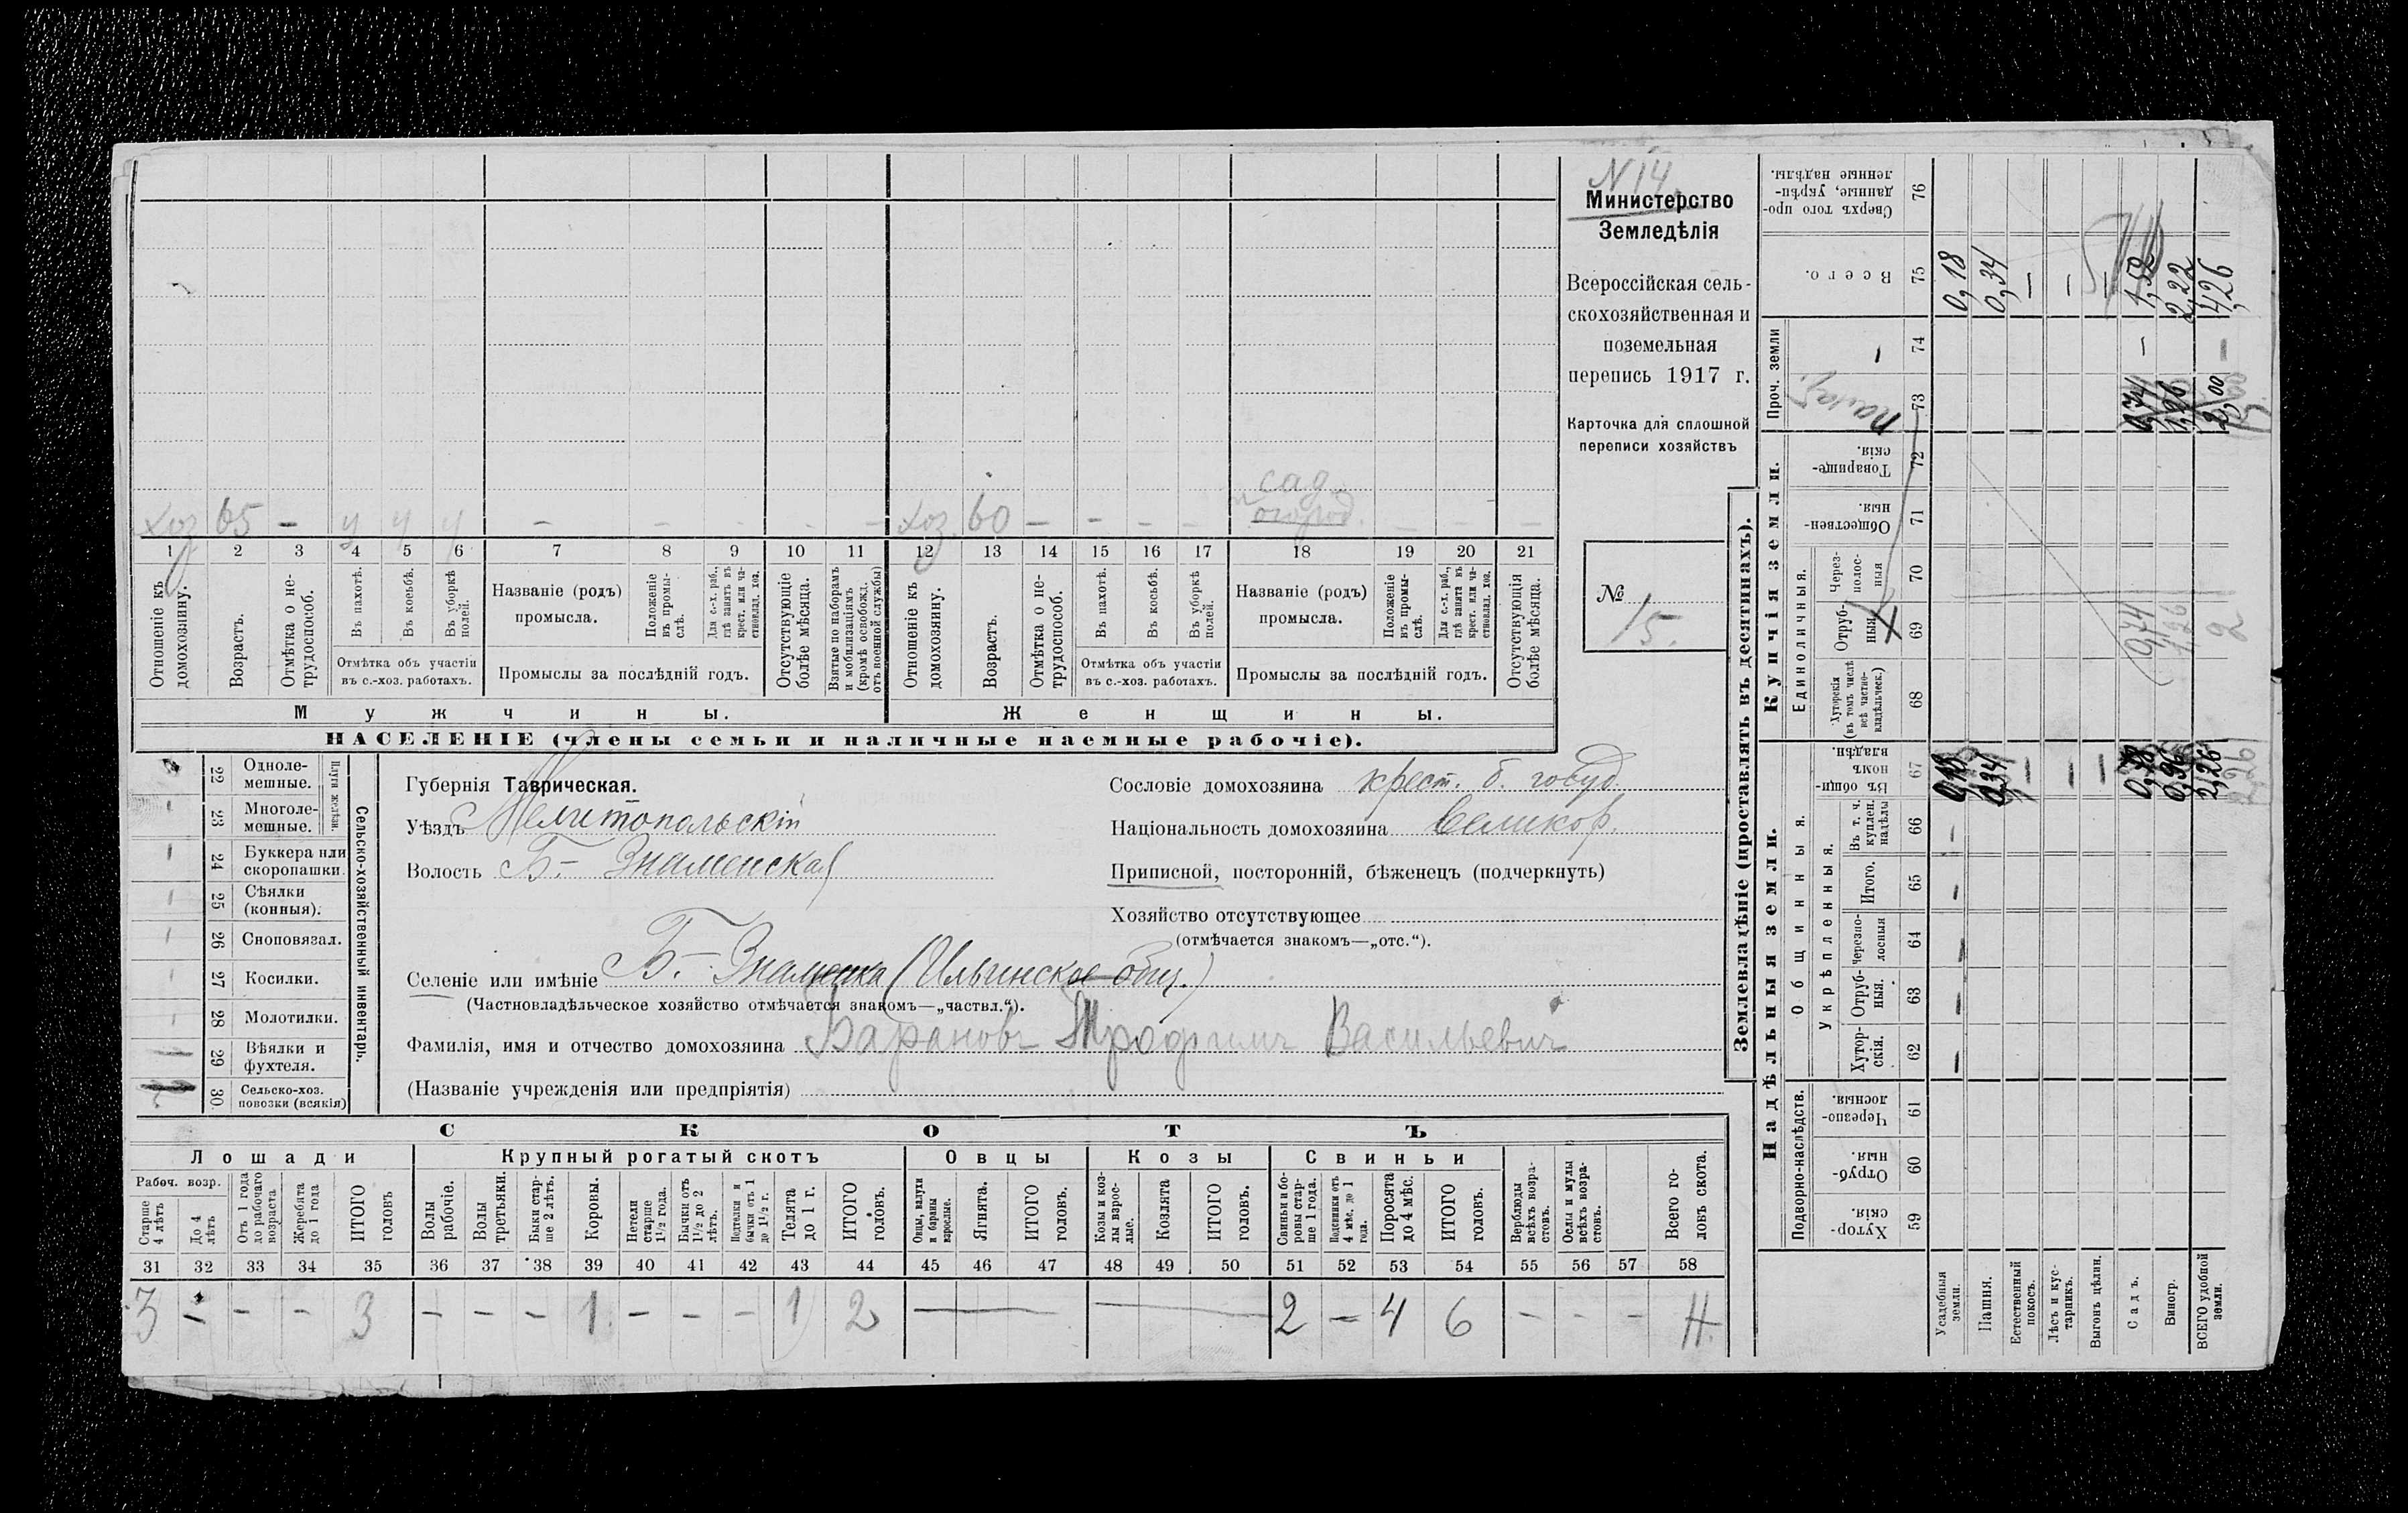 N 14
Министерство
Земледѣлія
Всероссійская сель-
скохозяйственная и
поземельная
перепись 1917 г.
Карточка для сплошной
переписи хозяйствъ
№
15.
сад.
и
огород.
хоз 65 – у у у – – – – – хоз 60 – – – – – – –
1 2 3 4 5 6 7 8 9 10 11 12 13 14 15 16 17 18 19 20 21
Отношеніе къ домохозяину.
Возрастъ.
Отмѣтка о не-трудоспособ.
Въ пахотѣ.
Въ косьбѣ.
Въ уборкѣ полей.
Отмѣтка объ участіи
въ с.-хоз. работахъ.
Названіе (родъ)
промысла.
Положеніе въ промы-слѣ.
Для с.-х. раб., гдѣ занятъ въ крест. или ча-стновлад. хоз.
Промыслы за послѣдній годъ.
Отсутствующіе болѣе мѣсяца.
Взятые по наборамъ и мобилизаціямъ (кромѣ освобожд. отъ военной службы)
Отношеніе къ домохозяину.
Возрастъ.
Отмѣтка о не-трудоспособ.
Въ пахотѣ.
Въ косьбѣ.
Въ уборкѣ полей.
Отмѣтка объ участіи
въ с.-хоз. работахъ.
Названіе (родъ)
промысла.
Положеніе въ промы-слѣ.
Для с.-х. раб., гдѣ занята въ крест. или ча-стновлад. хоз.
Промыслы за послѣдній годъ.
Отсутствующія болѣе мѣсяца.
Мужчины.
Женщины.
НАСЕЛЕНІЕ (члены семьи и наличные наемные рабочіе).
22 Одноле-мешные.
23 Многоле-мешные.
Плуги желѣзн.
24 Буккера или скоропашки.
25 Сѣялки (конныя).
26 Сноповязал.
27 Косилки.
28 Молотилки.
29 Вѣялки и фухтеля.
30 Сельско-хоз. повозки (всякія)
Сельско-хозяйственный инвентарь.
Губернія Таврическая.
Уѣздъ Мелитопольскій
Волость Б- Знаменская
Селеніе или имѣніе Б.- Знаменка (Ильинское общ.)
(Частновладѣльческое хозяйство отмѣчается знакомъ—„частвл.“).
Фамилія, имя и отчество домохозяина Барановъ Трофимъ Васильевич
(Названіе учрежденія или предпріятія)
Сословіе домохозяина крест. б. госуд.
Національность домохозяина великор.
Приписной, посторонній, бѣженецъ (подчеркнуть)
Хозяйство отсутствующее
(отмѣчается знакомъ—„отс.“).
СКОТЪ
Лошади
Крупный рогатый скотъ
Овцы
Козы
Свиньи
Рабоч. возр.
Старше 4 лѣтъ
До 4 лѣтъ
Отъ 1 года до рабочаго возраста
Жеребята до 1 года
ИТОГО головъ
Волы рабочіе.
Волы третьяки.
Быки стар-ше 2 лѣтъ.
Коровы.
Нетели старше 1½ года.
Бычки отъ 1½ до 2 лѣтъ.
Подтелки и бычки отъ 1 до 1½ г.
Телята до 1 г.
ИТОГО головъ.
Овцы, валухи и бараны взрослые.
Ягнята.
ИТОГО головъ.
Козы и коз-лы взрос-лые.
Козлята
ИТОГО головъ.
Свиньи и бо-ровы стар-ше 1 года.
Подсвинки отъ 4 мѣс. до 1 года.
Поросята до 4 мѣс.
ИТОГО головъ.
Верблюды всѣхъ возра-стовъ.
Ослы и мулы всѣхъ возра-стовъ.
Всего го-ловъ скота.
31 32 33 34 35 36 37 38 39 40 41 42 43 44 45 46 47 48 49 50 51 52 53 54 55 56 57 58
3 – – – 3 – – – 1 – – – 1 2 — — 2 – 4 6 – – – 11
Землевладѣніе (проставлять въ десятинахъ).
Надѣльныя земли.
Купчія земли.
Проч. земли
Подворно-наслѣдств.
Общинныя.
Укрѣпленныя.
Единоличныя.
Хутор-скія. 59
Отруб-ныя. 60
Черезпо-лосныя. 61
Хутор-скія. 62
Отруб-ныя. 63
Черезпо-лосныя 64
Итого. 65
Въ т. ч. куплен. надѣлы 66
Въ общи-номъ владѣн. 67
Хуторскія (въ томъ числѣ всѣ частно-владѣльческ.) 68
Отруб-ныя 69
Через-полос-ныя 70
Обществен-ныя. 71
Товарище-скія. 72
73
74
Всего. 75
Сверхъ того про-данные, укрѣп-ленные надѣлы. 76
Усадебныя земли. 0,18 0,18
Пашня. 0,34 0,34
Естественный покосъ. – –
Лѣсъ и кус-тарникъ. – –
Выгонъ цѣлин. – –
Садъ. 0,78 0,74 0,74 – 1,52
Виногр. 0,96 1,26 1,26 2,22
ВСЕГО удобной земли. 2,26 2 2,00 – 4,26